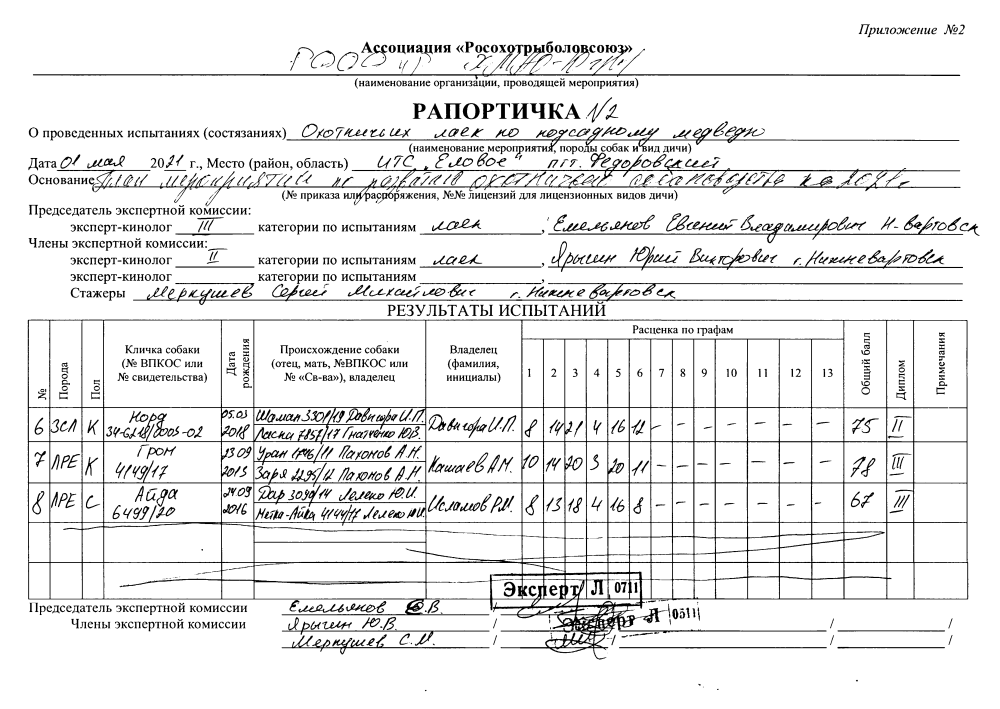 Приложение №2
Ассоциация «Росохотрыболовсоюз»
РООО и Р ХМАО-Югры
(наименование организации, проводящей мероприятия)
РАПОРТИЧКА N2
О проведенных испытаниях (состязаниях) Охотничьих лаек по подсадному медведю
(наименование мероприятия, породы собак и вид дичи)
Дата 01 мая 2021 г., Место (район, область) ИТС „Еловое" пгт. Федоровский
Основание План мероприятий по развитию охотничьего собаководства на 2021г
(№ приказа или распоряжения, №№ лицензий для лицензионных видов дичи)
Председатель экспертной комиссии:
эксперт-кинолог III категории по испытаниям лаек , Емельянов Евгений Владимирович Н-Вартовск
Члены экспертной комиссии:
эксперт-кинолог II категории по испытаниям лаек , Ярыгин Юрий Викторович г.Нижневартовск
эксперт-кинолог категории по испытаниям
Стажеры Меркушев Сергей Михайлович г.Нижневартовск
РЕЗУЛЬТАТЫ ИСПЫТАНИЙ
№ Порода Пол Кличка собаки (№ ВПКОС или № свидетельства) Дата рождения Происхождение собаки (отец, мать, №ВПКОС или № «Св-ва»), владелец Владелец (фамилия, инициалы) Расценка по графам Общий балл Диплом Примечания
1 2 3 4 5 6 7 8 9 10 11 12 13
6 ЗСЛ К Норд 05.03 Шаман 3301/19 Давигора И.П. Давигора И.П. 8 14 21 4 16 12 – – – – – – – 75 II
34-6218/0003-02 2018 Ласка 7857/17 Гнатченко Ю.В.
7 ЛРЕ К Гром 23.09 Уран 1746/11 Пахонов А.Н. Кашаев А.Н. 10 14 20 3 20 11 – – – – – – – 78 III
4149/17 2013 Заря 2295/12 Пахонов А.Н.
8 ЛРЕ С Айда 24.09 Дар 3090/14 Лелеко Ю.И. Исламов Р.М. 8 13 18 4 16 8 – – – – – – – 67 III
6499/20 2016 Нетка-Айка 4144/17 Лелеко Ю.И.
Эксперт Л 0711
Председатель экспертной комиссии Емельянов Е.В. /
Члены экспертной комиссии Ярыгин Ю.В / Эксперт Л 0511 / /
Меркушев С.М. / / /